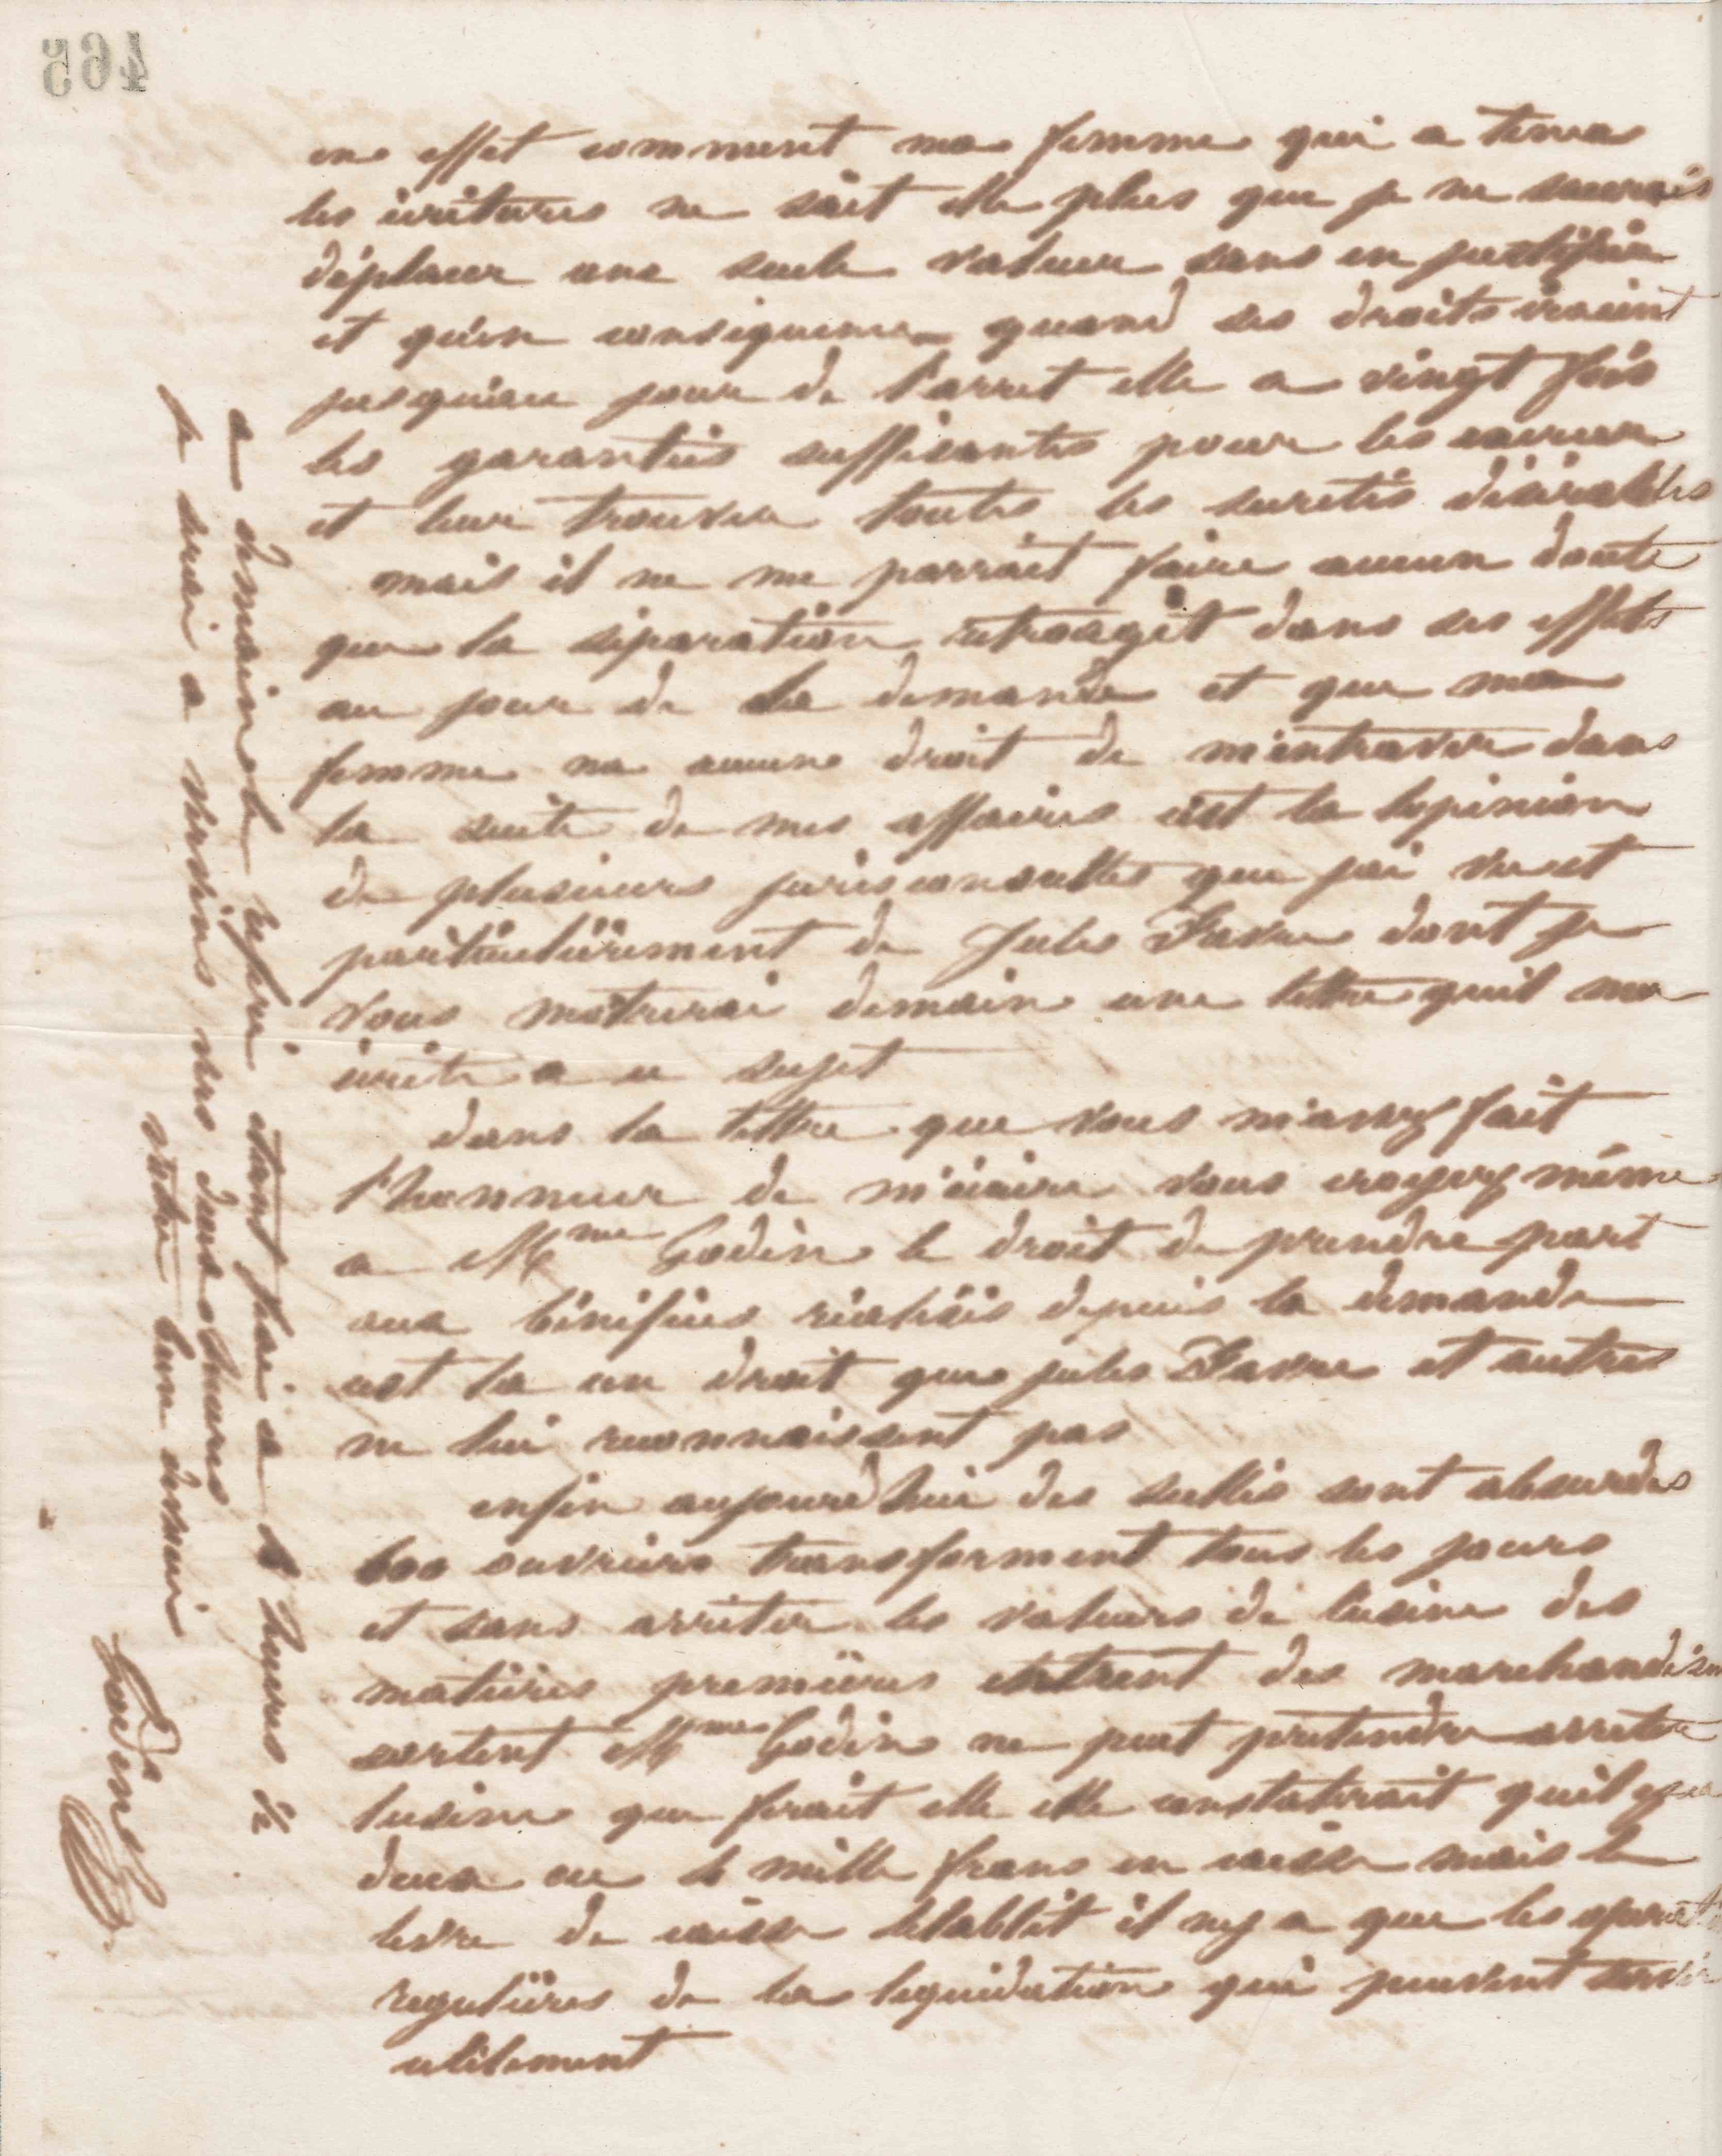 465
en effet comment ma femme qui a tenu
les écritures ne sait elle plus que je ne saurais
déplacer une seule valeur sans en justifier
et qu'en conséquence quand ses droits iraient
jusqu'au jour de l'arret elle a vingt fois
les garanties suffisantes pour les couvrir
et leur trouver toutes les suretés désirables
mais il ne me parrait faire aucun doute
que la séparation rétroagit dans ses effets
au jour de la demande et que ma
femme na aucune droit de m'entraver dans
la suite de mes affaires c'est la lopinion
de plusieurs jurisconsultes que jai vu et
particulièrement de Jules Favre dont je
vous montrerai demain une lettre quil ma
écrite a ce sujet
dans la lettre que vous m'avez fait
l'honneur de m'écrire vous croyez même
a Mme Godin le droit de prendre part
aux bénéfices réalisés depuis la demande
cest la un droit que jules Favre et autres
ne lui reconnaissent pas
enfin aujourd'hui des scellés sont absurdes
600 ouvriers transforment tous les jours
et sans arrêter les valeurs de lusine des
matières premières entrent des marchandises
sortent Mme Godin ne peut prétendre arreter
lusine que ferait elle elle constaterait quil y a
deux ou 4 mille francs en caisse mais le
livre de caisse létablit il ny a que les
regulières de la liquidation qui peuvent servir
utilement
a demain le référé étant fixé a heures ½
je serai a Vervins vers deux heures
votre bien dévoué
Godin